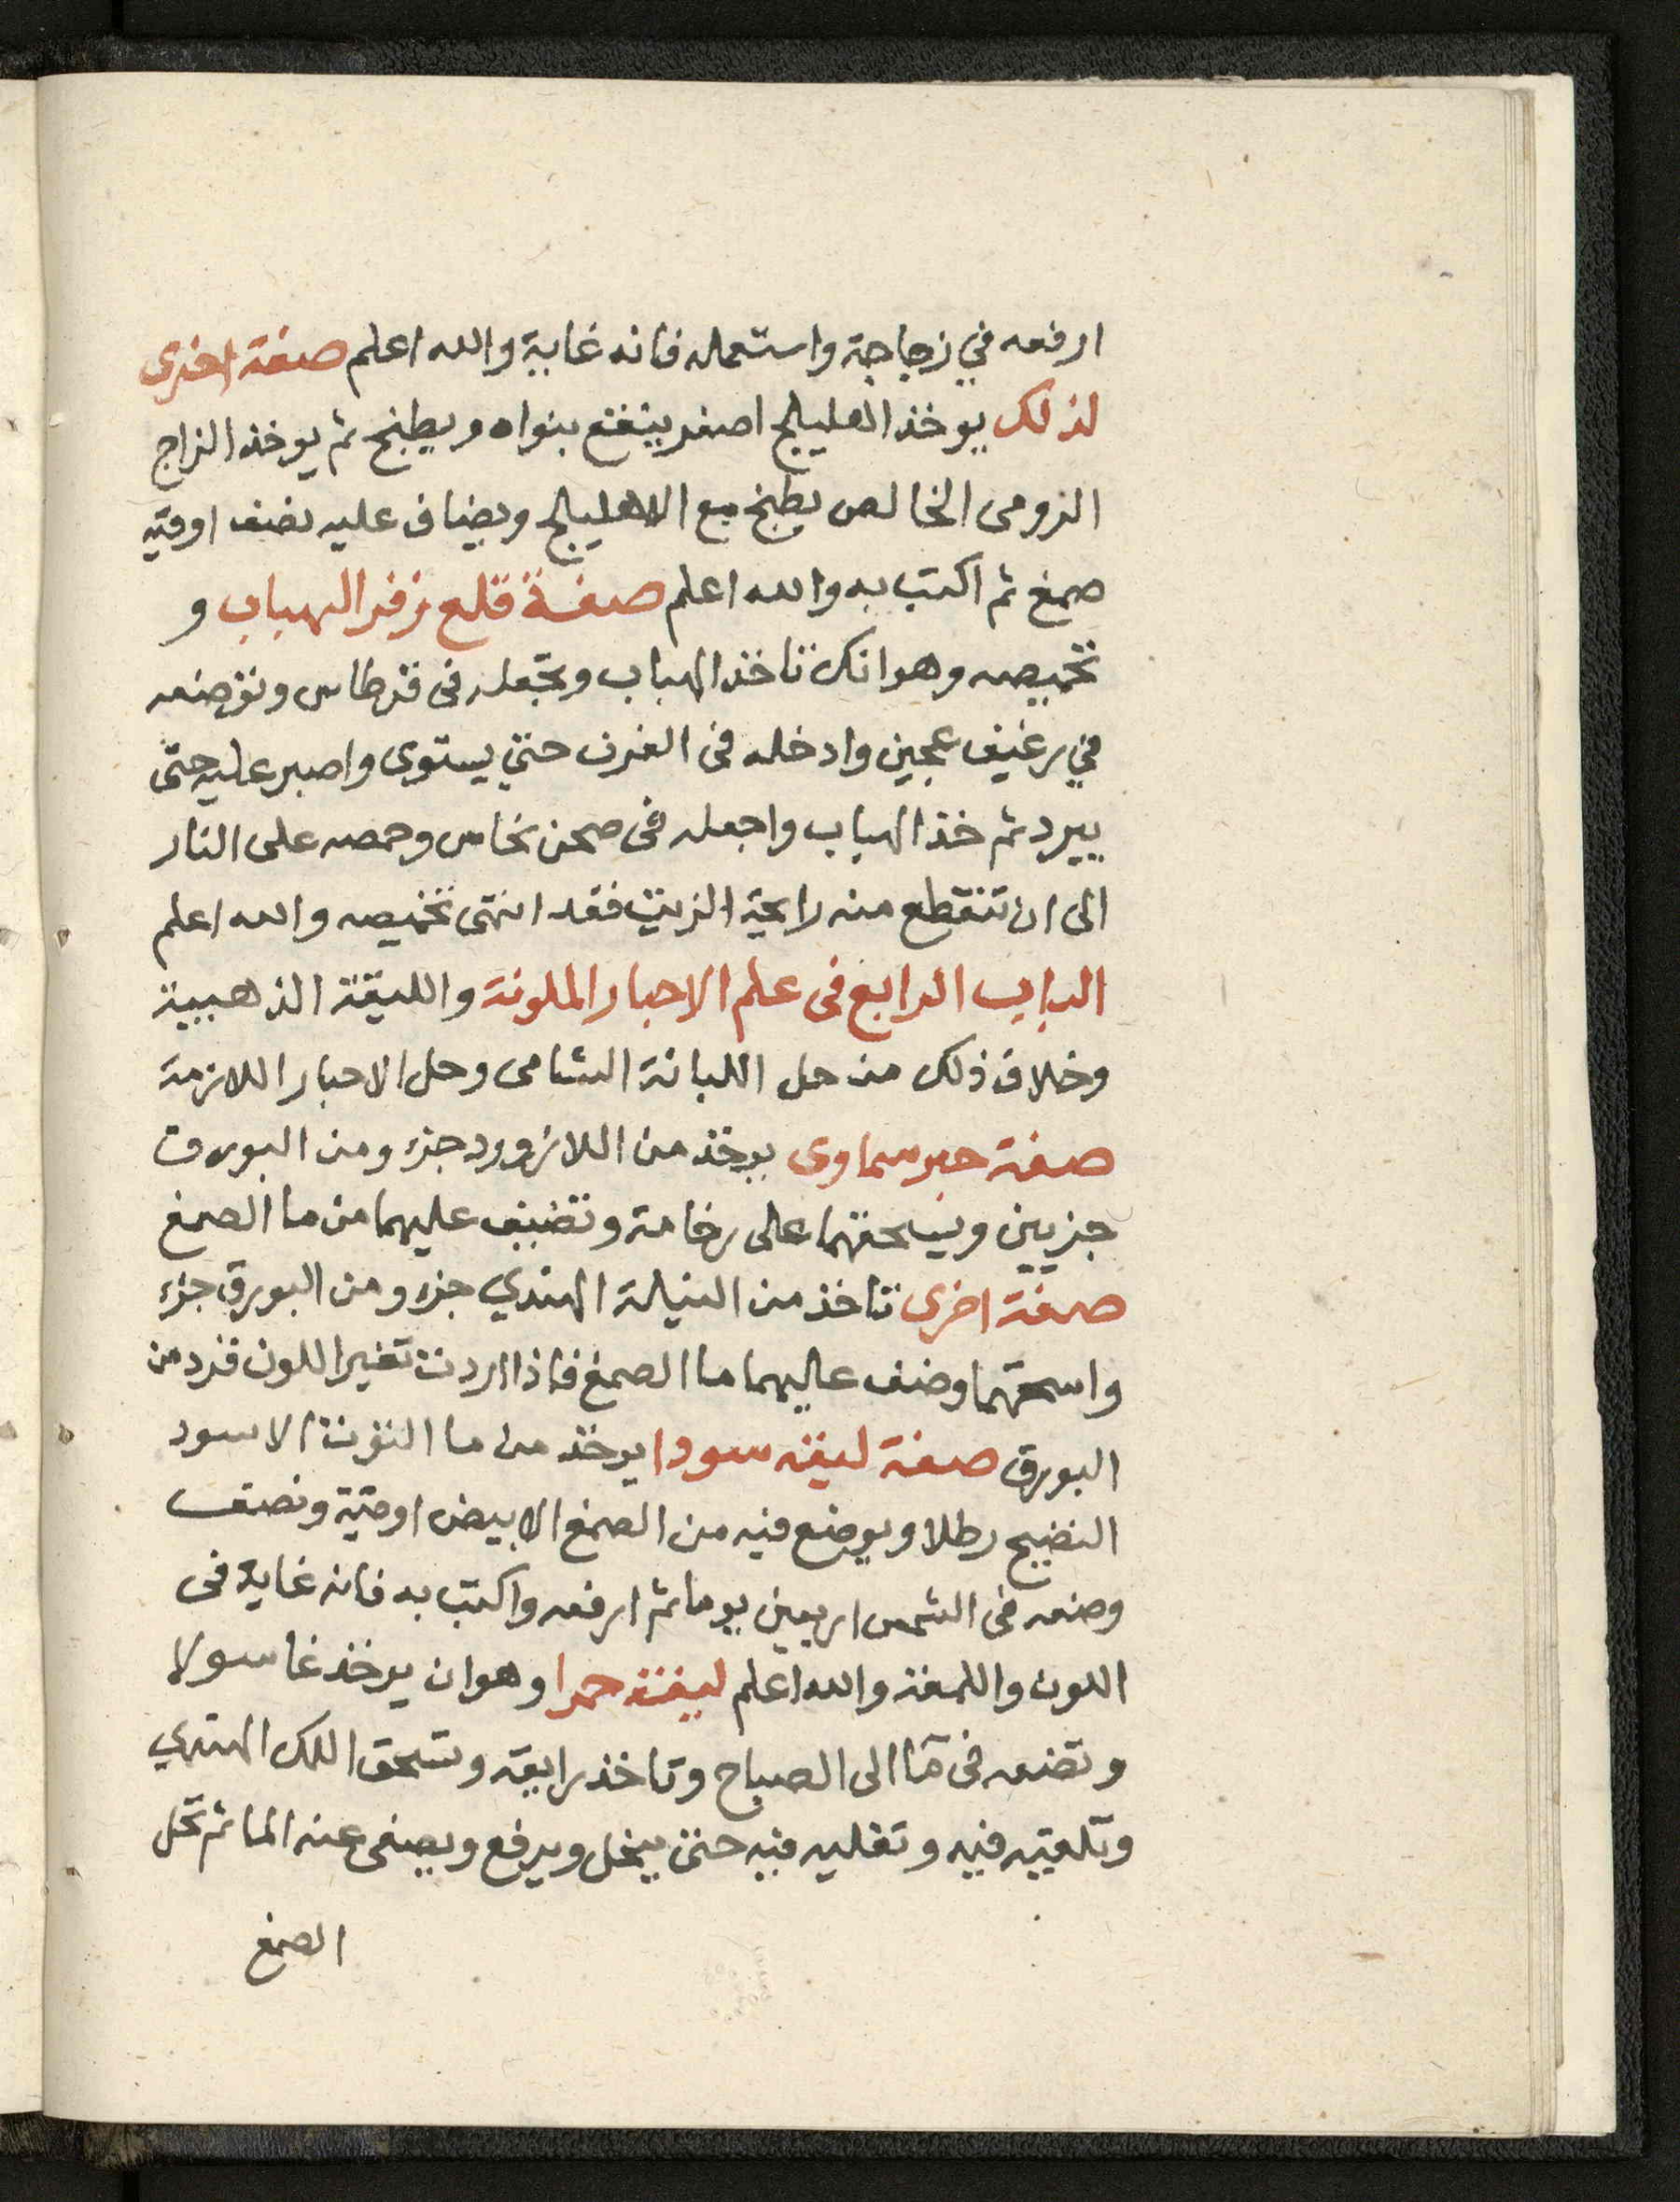 ارفعه في زجاجة واستعماله فانه غاية والله اعلم صفة اخرى
لذلك يوخذ الهليلج اصفر ينقع بنواه ويطبخ ثم يوخذ الزاج
الرومى الخالص يطبخ مع الاهليلج ويضاف عليه نصف اوقيه
صمغ ثم اكتب به والله اعلم صفة قلع زفر الهباب و
تحميصه وهو انك تاخذ الهباب وتجعله فى قرطاس وتوضعه
في رغيف عجين وادخله فى الفرن حتي يستوى واصبر عليه حتى
يبرد ثم خذ الهباب واجعله فى صحن نحاس وحمصه على النار
الى ان تنقطع منه رايحة الزيت فقد انتهى تحميصه والله اعلم
الباب الرابع فى علم الاحبار الملونة والليقة الذهبية
وخلاف ذلك من حل اللبانة الشامى وحل الاحبار اللازمة
صفة حبر سماوى يوخذ من اللازورد جزء ومن البورق
جزيين ويسحقهما على رخامة وتضيف عليهما من ما الصمغ
صفة اخرى تاخذ من النيلة الهندي جزء ومن البورق جزء
واسحقهما وضف عاليهما ما الصمغ فاذا اردت تغير اللون فزد من
البورق صفة ليقه سودا يوخذ من ما التوت الاسود
النضيج رطلا ويوضع فيه من الصمغ الابيض اوقية ونصف
وضعه فى الشمس اربعين يوما ثم ارفعه واكتب به فانه غاية فى
اللون واللمعة والله اعلم ليقة حمرا وهو ان يوخذ غاسولا
وتضعه فى مآ الى الصباح وتاخذ رايقه وتسحق اللك الهندي
وتلقيه فيه وتغليه فيه حتى ينحل ويرفع ويصفى عنه الما ثم تحل
الصمغ